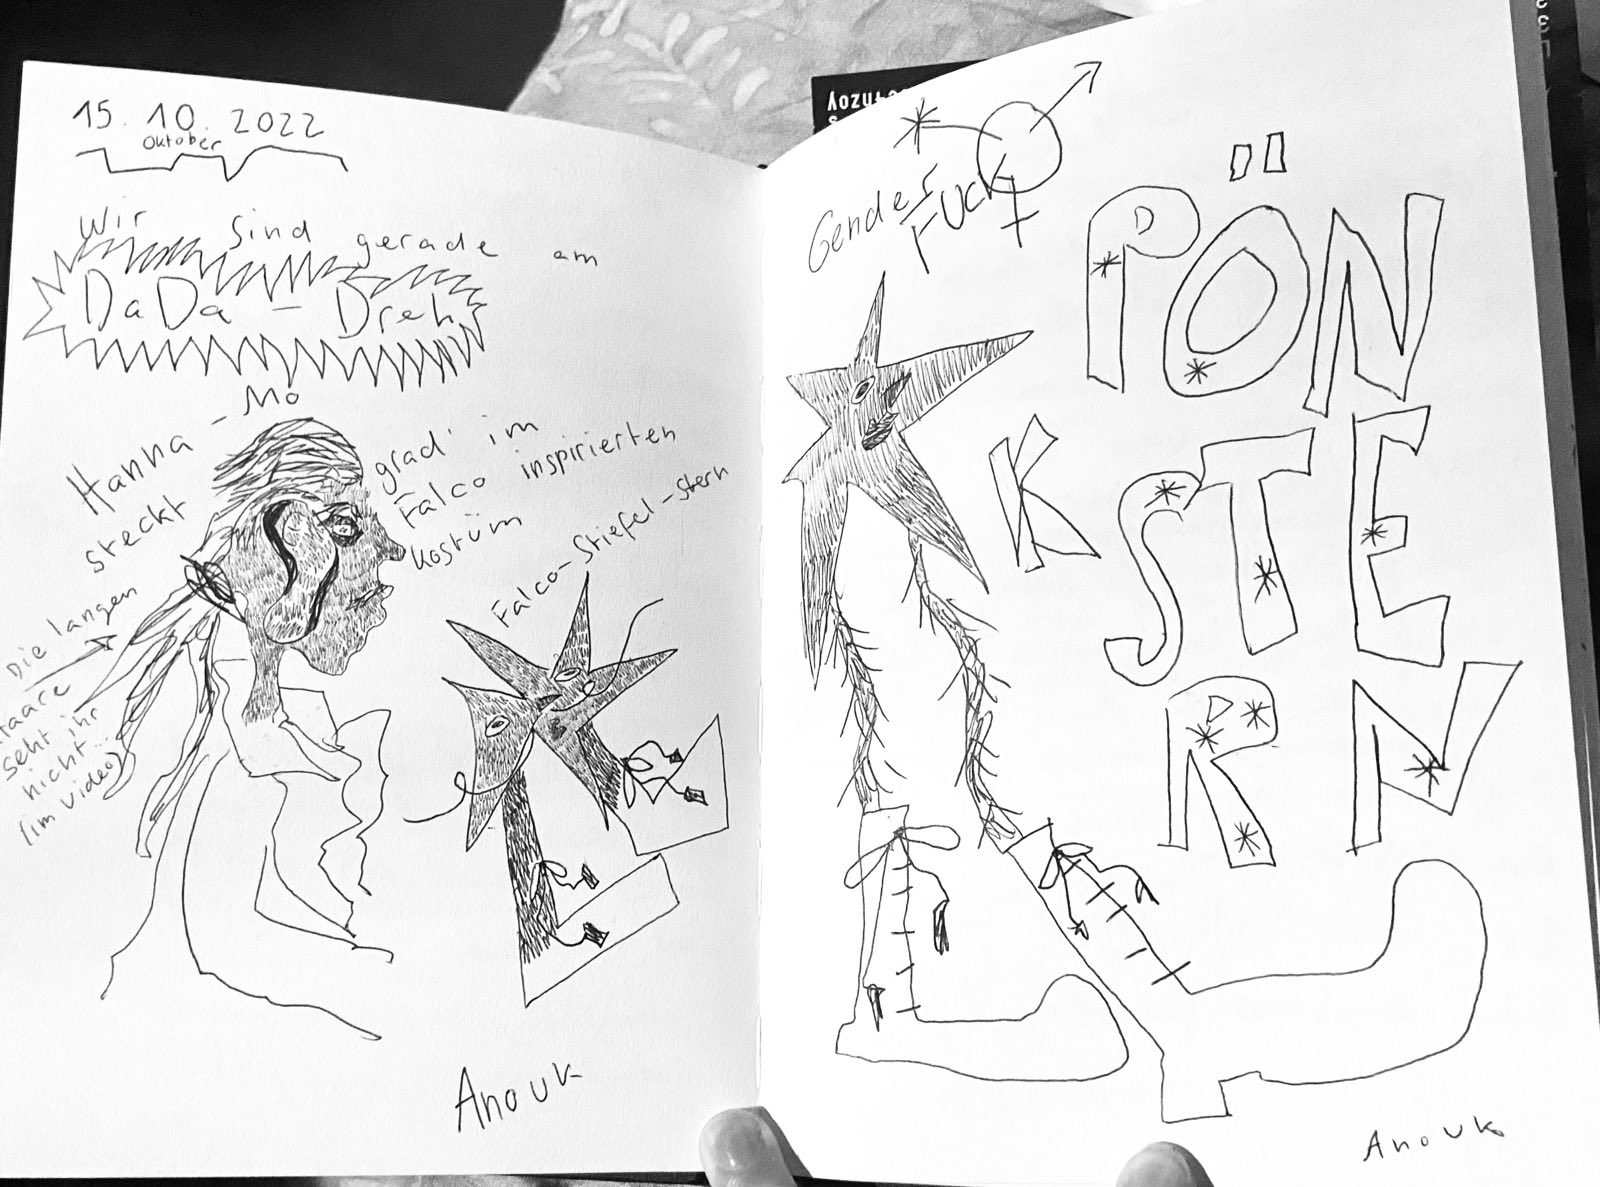 15. 10. 2022
Oktober
Wir sind gerade am
DaDa - Dreh
Hanna - Mo
steckt
grad' im
Falco inspirierten
Kostüm
Die langen
Haare
seht ihr
nicht
(im Video)
Falco-Stiefel-Stern
Anouk
Gender
Fuck
PÖN
K STE
RN
Anouk